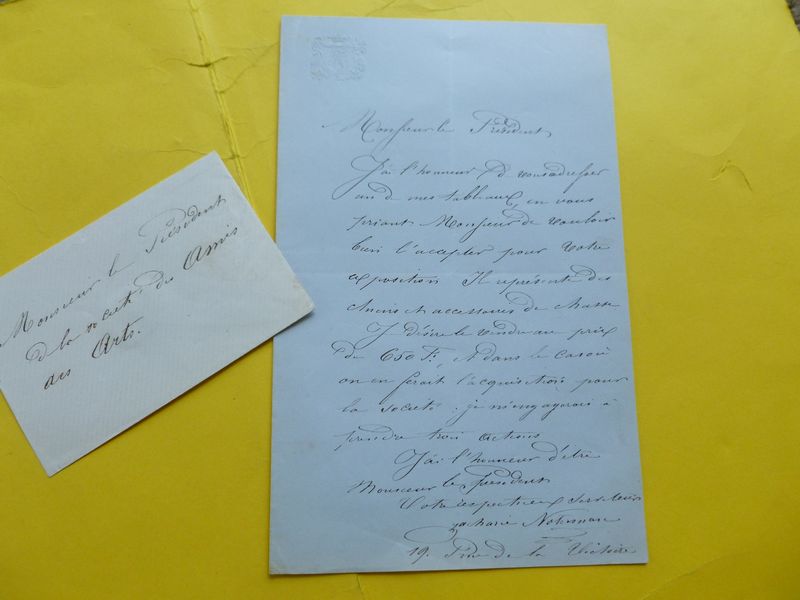 Monsieur le Président
J'ai l'honneur de vous adresser
un d mes tableaux, en vous
priant Monsieur de vouloir
bien l'accepter pour votre
exposition Il représente des
chiens et accessoires de chasse
Je désire le vendre au prix
de 650 F: et dans le cas où
on en ferait l'acquisition pour
la societé: je m'engagerais à
prendre trois actions
J'ai l'honneur d'être
Monsieur le President
Votre respectueux serviteur
Zacharie Noterman
19. Rue de la Victoire
Monsieur le Président
de la société des Amis
des Arts.